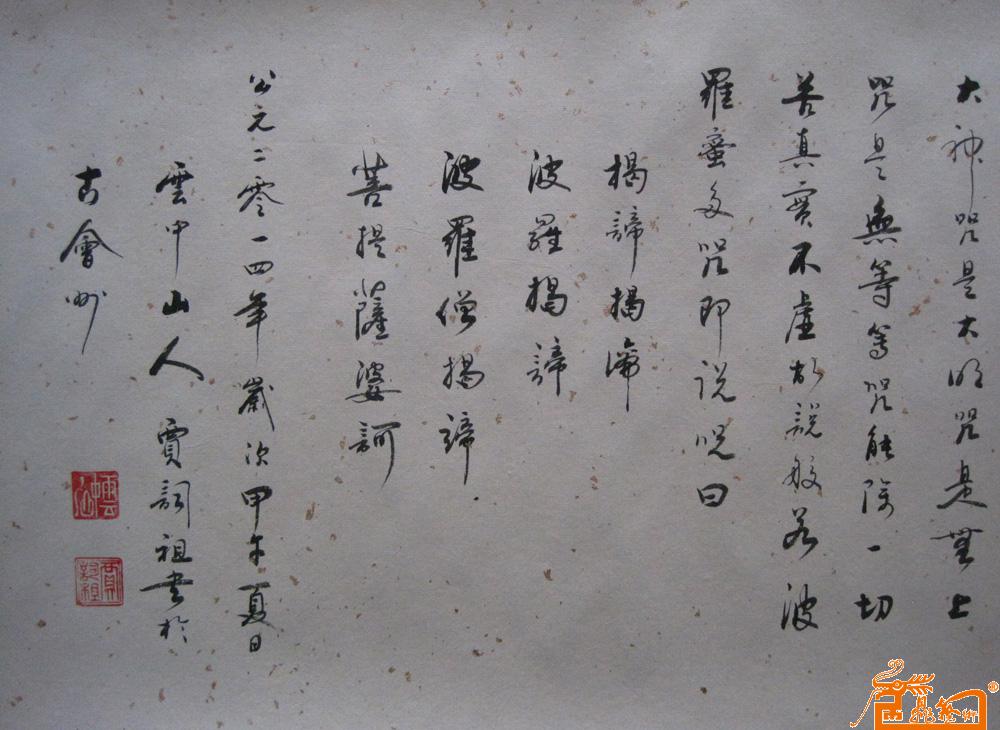 大神咒是大明咒是無上
咒是無等等咒能除一切
苦真實不虛故說般若波
羅蜜多咒即说咒曰
揭諦揭諦
波羅揭諦
波羅僧揭諦
菩提薩婆訶
公元二零一四年歲次甲午夏日
雲中山人賈詞祖书於
古會州